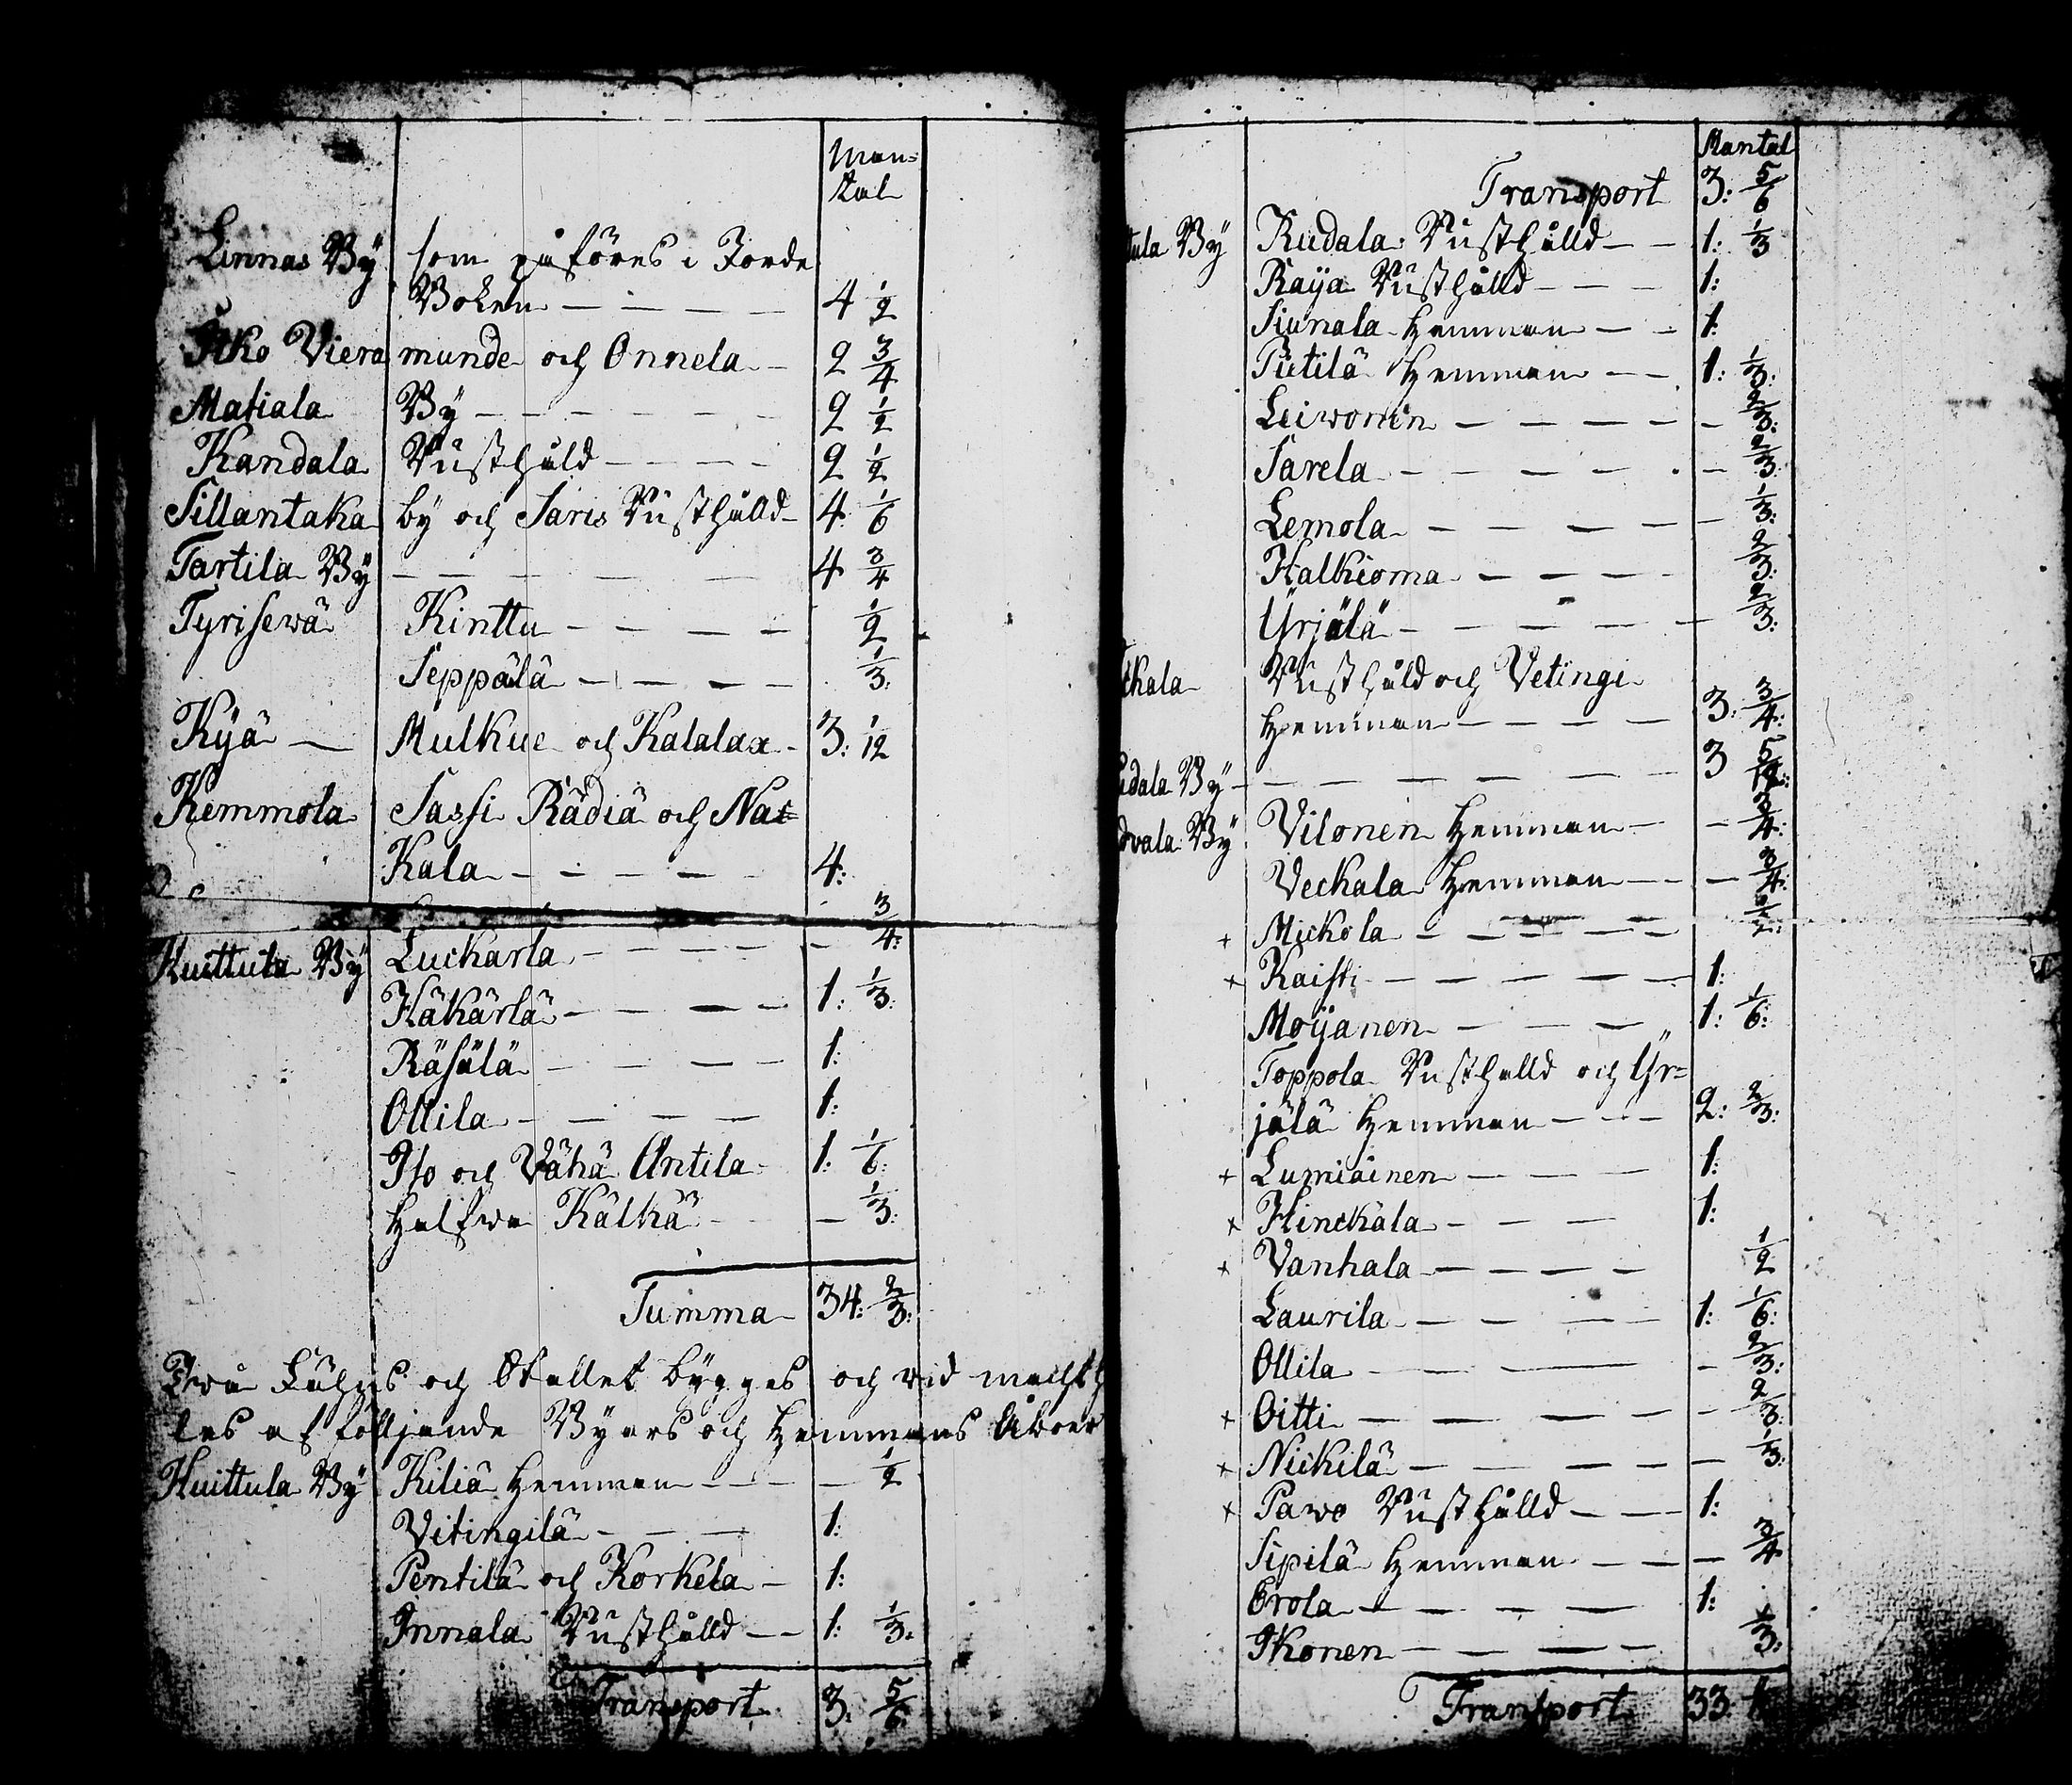 Man=
tal
Linnas By som påföres i Jorde
Boken — — — — 4 1/2
Itko Viera munde och Onnela — 2 3/4
Matiala By — — — — 2 1/2
Kandala Rusthåld — — — 2 1/2
Sillantaka by och Saris Rusthålld — 4: 1/6
Tartila By — — — — 4 3/4
Tyrisewä Kinttu — — — — 1/2
Seppälä — — — — 1/3:
Kyä — Mulkue och Kalalax — 3: 1/12
Kemmola Sassi Rädiä och Nas=
Kala — — — — 4:
Huittula By Luckarla — — — — 3/4:
Häkärlä — — — — 1: 1/3:
Räsälä — — — — 1:
Ollila — — — — 1:
Iso och Vähä Antila — 1: 1/6:
Halfwa Kälkä — — 1/3:
Summa 34: 2/3:
Två Lähus och Stallet bygges och wid mackth
les af följande Byars och Hemmans Åboer
Huittula By Kiliä Hemman — — — 1/2
Vitingilä — — — 1:
Pentilä och Korkela — 1:
Innala Rusthålld — — 1: 1/3:
Transport 3: 5/6
Mantal
Transport 3: 5/6
tula By Rudala Rusthålld — — 1: 1/3
Raija Rusthålld — — — 1:
Siunala Hemman — — 1:
Putilä Hemman — — 1: 1/3:
Leiwonen — — — — — 2/3:
Sarela — — — — — 2/3:
Lemola — — — — — 1/3:
Halkioma — — — — 2/3:
Yrjälä — — — — — 2/3:
ckala Rusthåld och Vetinge
Hemman — — — — 3: 3/4:
udala By — — — — — — 3 5/12:
dvala By Vilonen Hemman — — 3/4:
Veckala Hemman — — — 3/4:
+ Mickola — — — — — 1/2:
+ Kaisti — — — — — 1:
Moijanen — — — „ 1: 1/6:
Toppola Rusthålld och Yr=
jälä Hemman — — — 2: 2/3:
+ Lumiainen — — — 1:
+ Hinckala — — — 1:
+ Vanhala — — — — 1/2
Laurila — — — — 1: 1/6:
Ollila — — — — 2/3:
+ Oitti — — — — — — 2/3:
+ Nickilä — — — — — 1/3:
+ Pawo Rusthålld — — — 1:
Sipilä Hemman — — — 3/4
Erola — — — — 1:
Ikonen — — — — 1/3:
Transport 33: